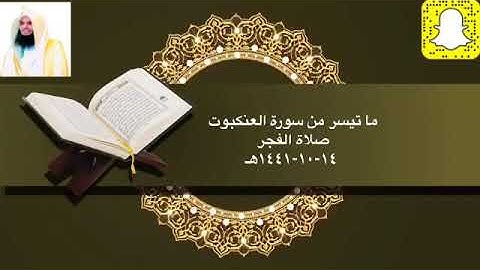 ما تيسر من سورة العنكبوت
صلاة الفجر
١٤-١٠-١٤٤١هـ